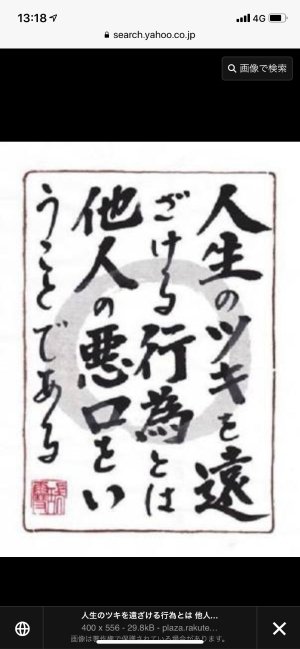 13:18
4G
search.yahoo.co.jp
画像で検索
人生のツキを遠
ざける行為とは
他人の悪口をい
うことである
人生のツキを遠ざける行為とは 他人...
400 x 556 - 29.8kB - plaza.rakute...
画像は著作権で保護されている場合があります。